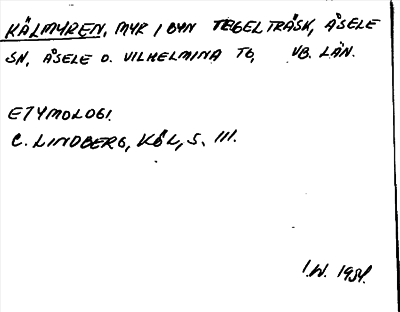 KÄLMYREN, MYR I BYN TEGELTRÄSK, ÅSELE
SN, ÅSELE O. VILHELMINA TG, VB. LÄN.
ETYMOLOGI.
C. LINDBERG, KÖL, S. III.
I.W. 1984.